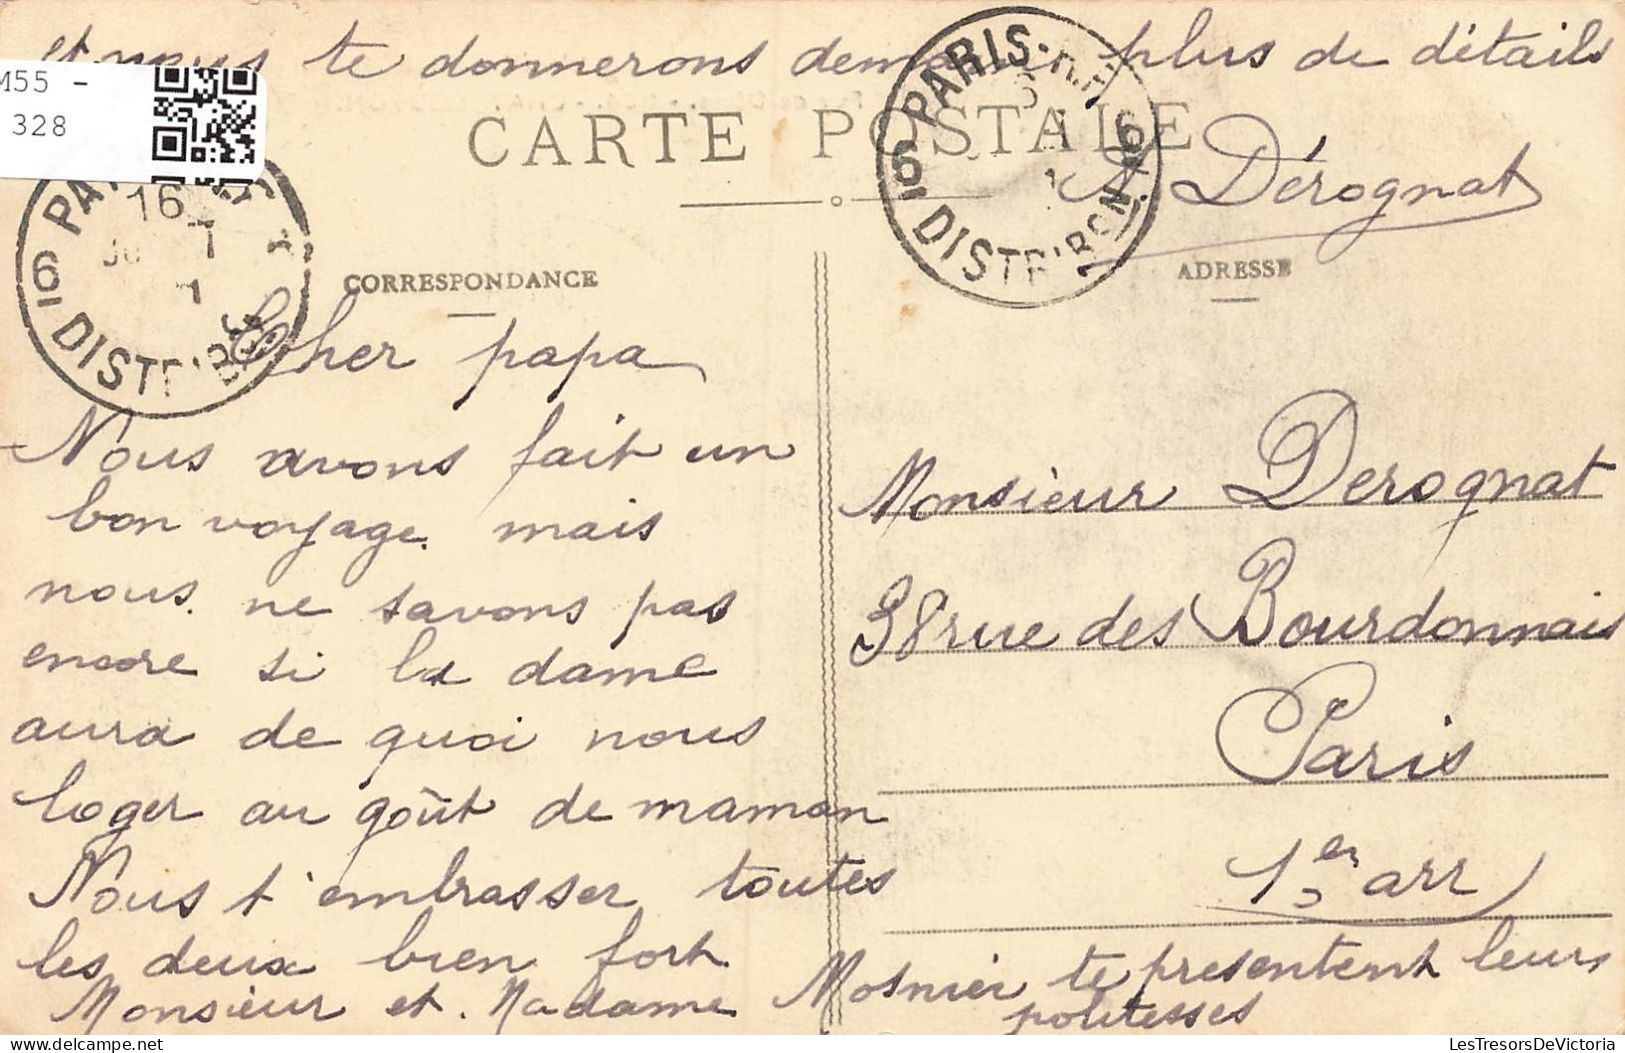 et nous te donnerons demain plus de détails
M55 -
328
CARTE POSTALE
A. Dérognat
PARIS
16
6
DISTRIBON
PARIS R.P.
6
6
DISTRIBON
CORRESPONDANCE
ADRESSE
Cher papa
Nous avons fait un
bon voyage mais
nous ne savons pas
encore si la dame
aura de quoi nous
loger au goût de maman
Nous t'embrasser toutes
les deux bien fort
Monsieur et Madame Mosnier te presentent leurs
politesses
Monsieur Derognat
38 rue des Bourdonnais
Paris
1er arr
LesTresorsDeVictoria